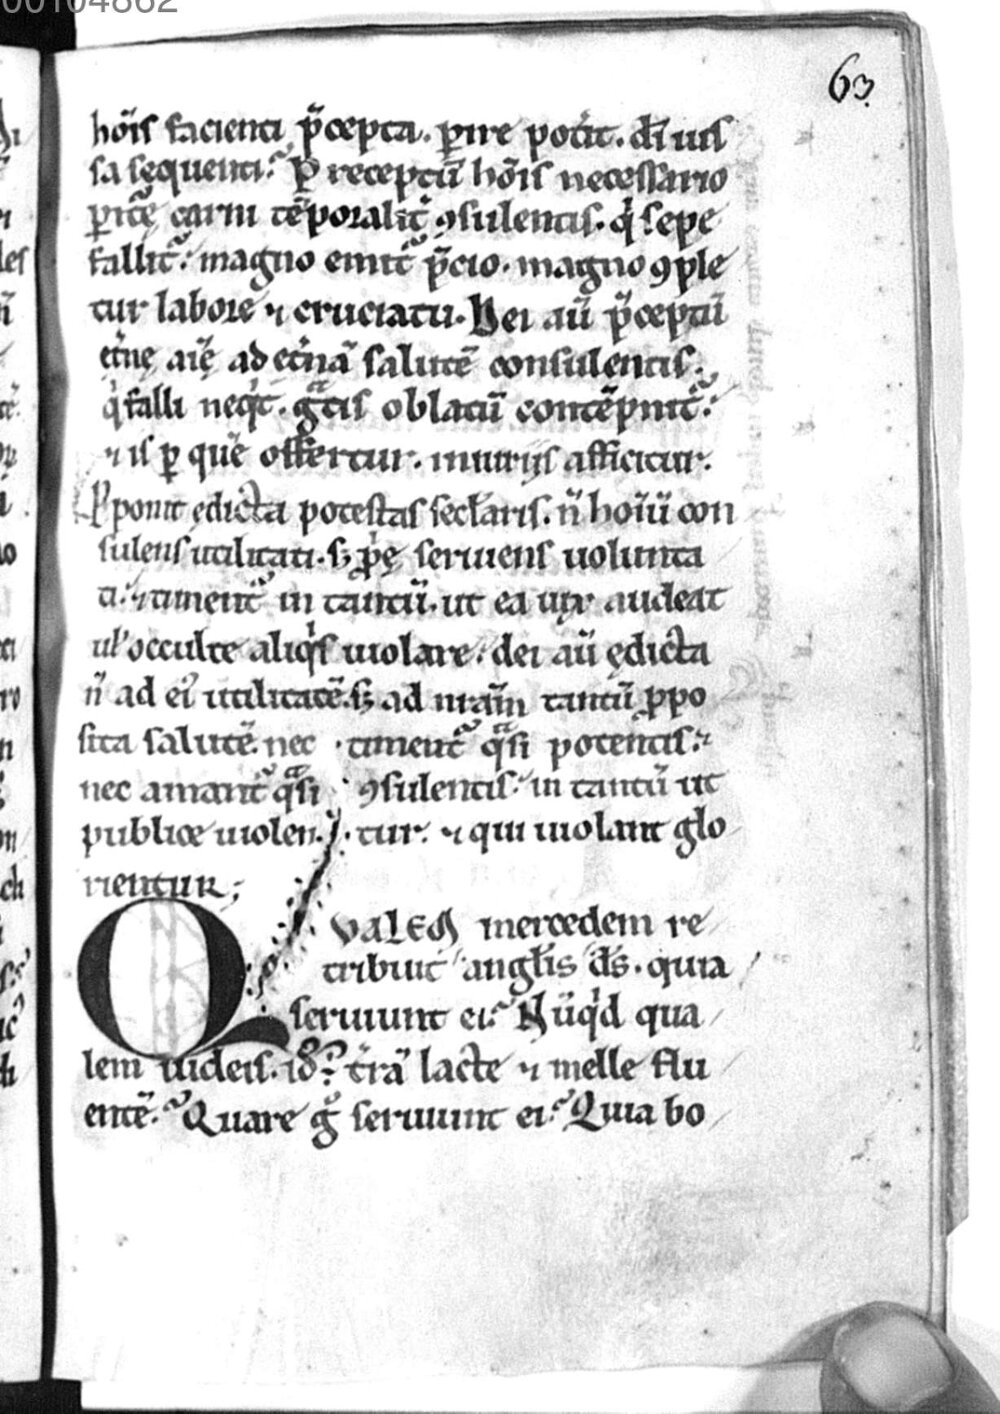 00104862
63
hōis facienti p̄cepta. ꝑire potit. dī uis
sa sequenti. Preceptū hōis necessario
carni tēporalit̄ ꝯsulentis. qͥ sepe
fallit᷑. magno emit᷑ p̄cio. magno ꝯple
tur labore ⁊ cruciatu. Dei aū p̄ceptū
et̄nę aīę ad et̄nā salutē consulentis.
qͥ falli neqͥt. gͣtis oblatū contēpnit᷑.
⁊ is ꝑ quē offertur. iniuriis afficitur.
Pponit ędicta potestas seclaris. n̄ hoīū con
sulens utilitati. sꝫ ꝓprię seruiens uolunta
ti. ⁊ timent᷑ in tantū. ut ea uix audeat
ul occulte aliqͥs uiolare. dei aū ędicta
n̄ ad eiꝰ utilitatē. sꝫ ad nr̄am tantū ꝓpo
sita salutē. nec timent᷑ qͣsi potentis.
nec amant᷑ qͣsi ꝯsulentis. in tantū ut
publice uiolen tur. ⁊ qui uiolant glo
rientur;
QVALEM mercedem re
tribuit anglis ds. quia
seruiunt ei. Nūqͥd qua
lem iudeis. id. t̄rā lacte ⁊ melle flu
entē. Quare gͦ seruiunt ei. Quia bo